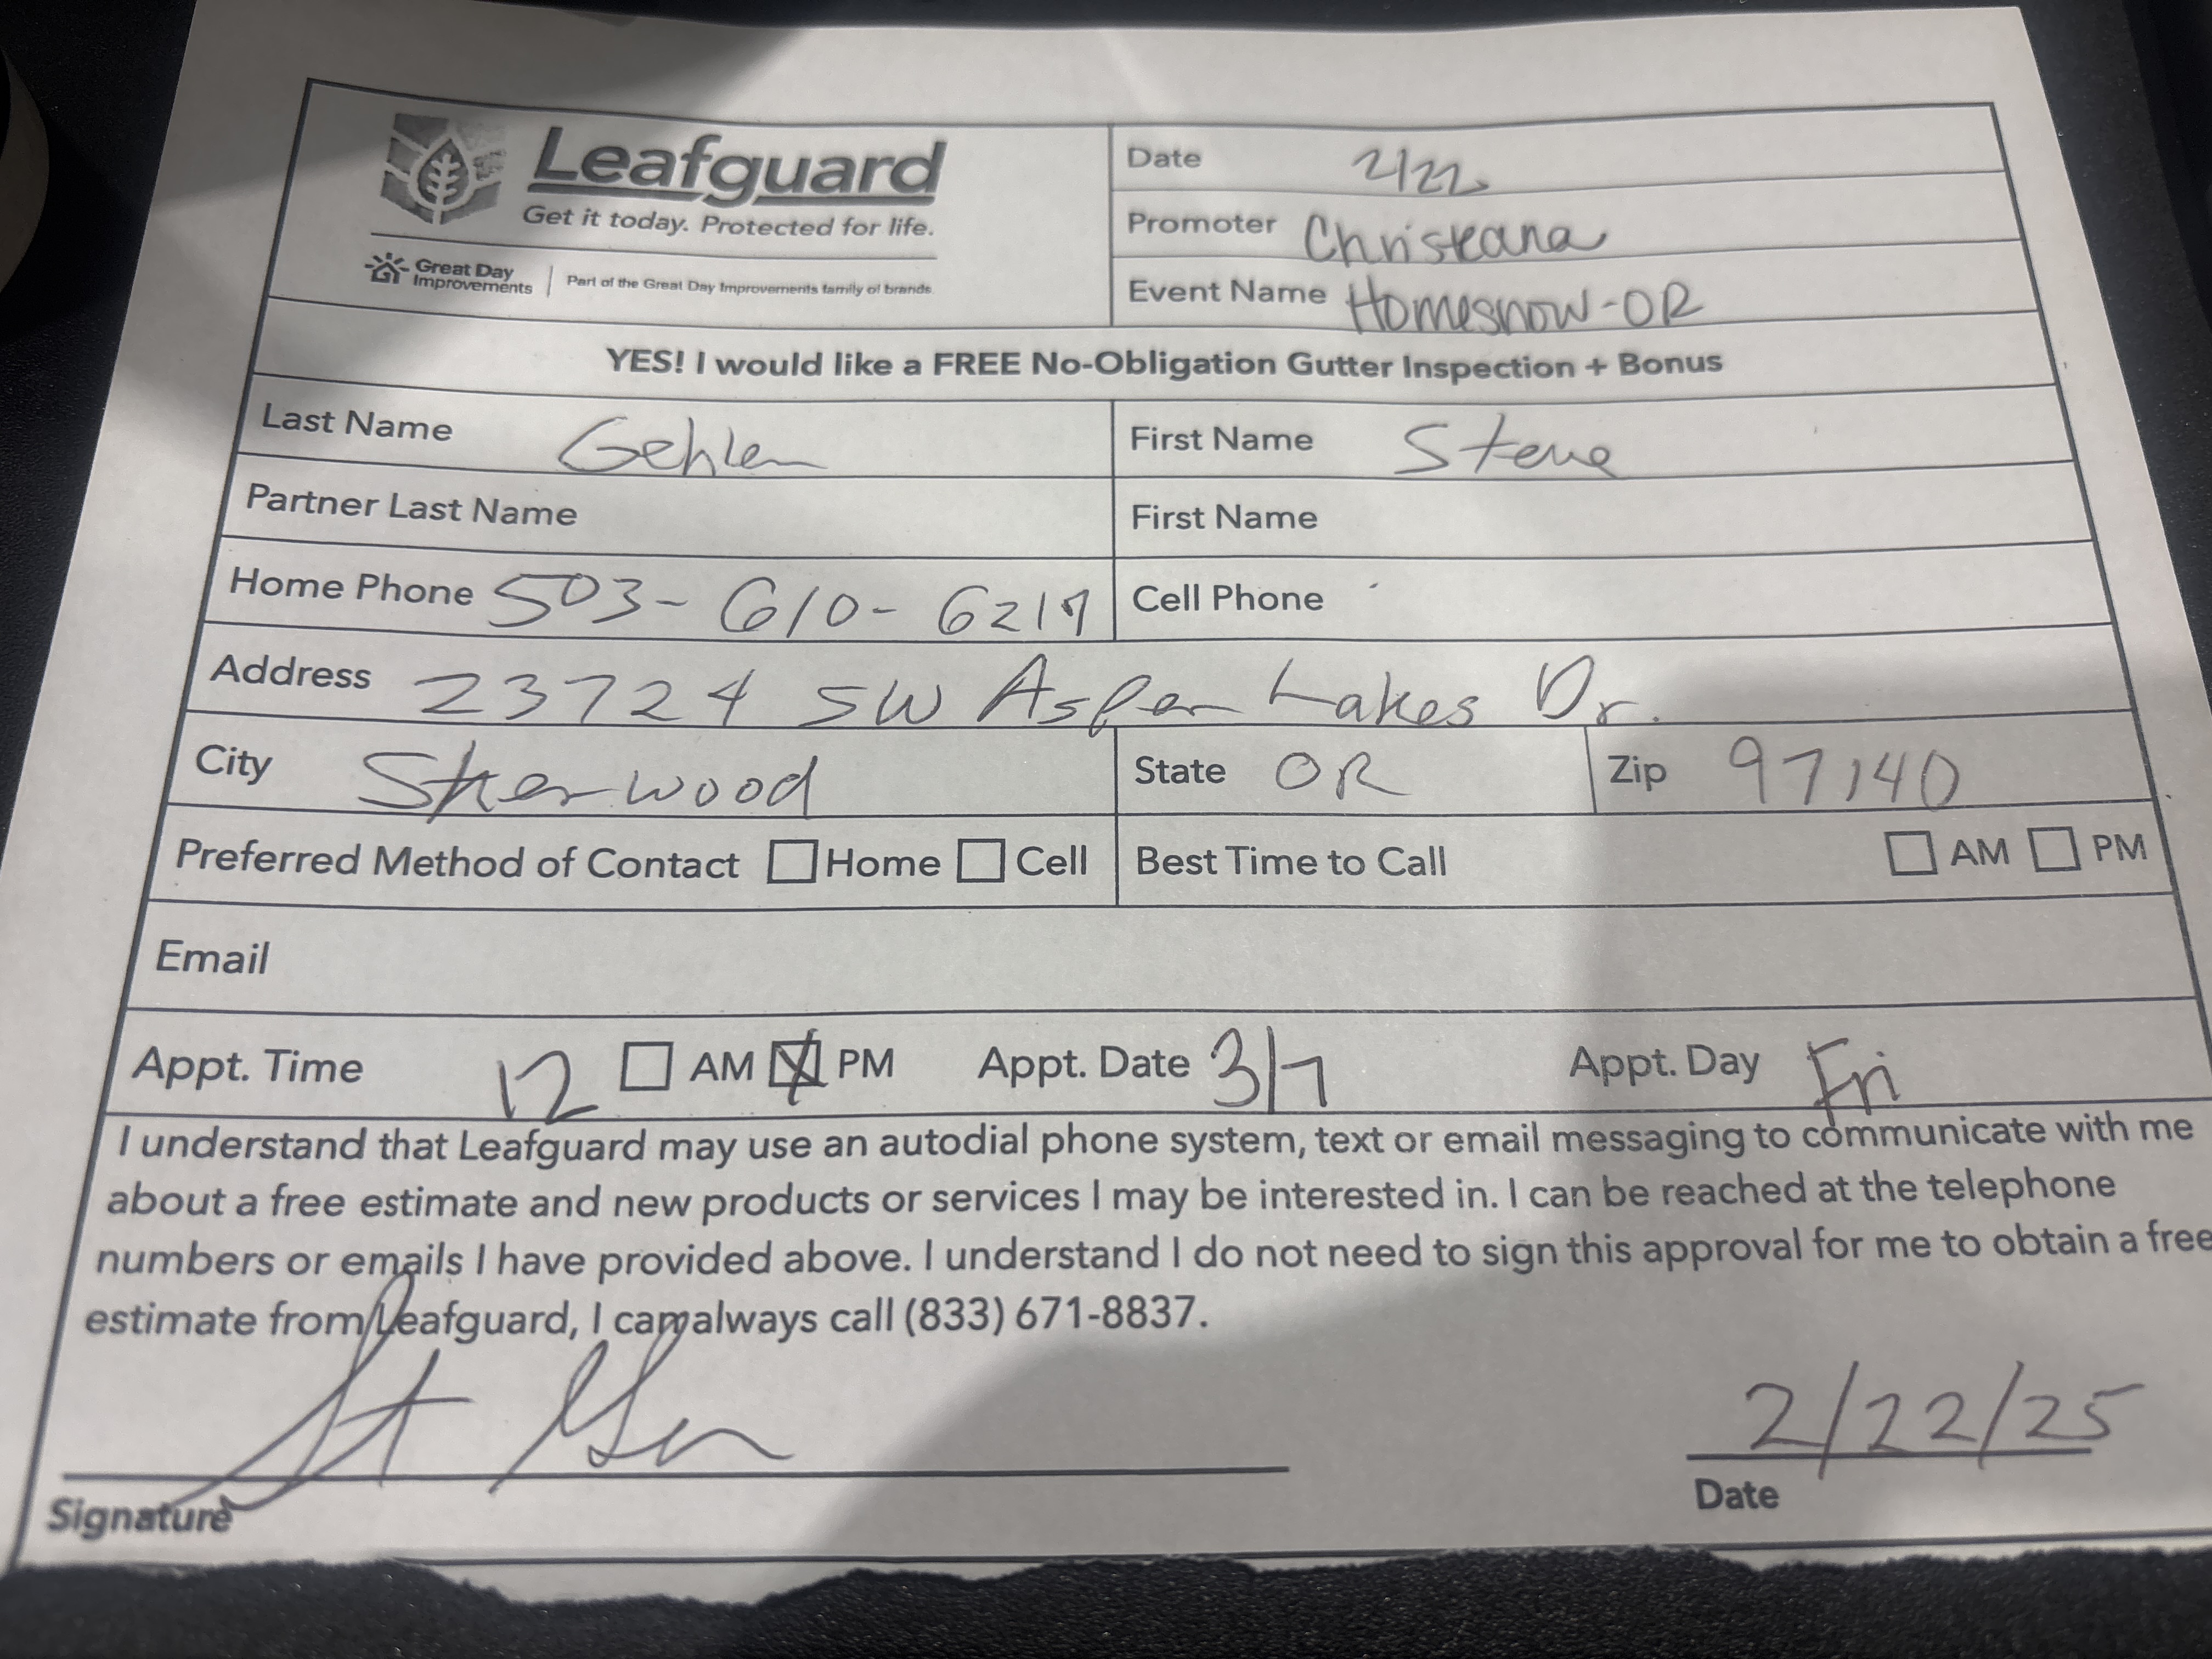 Leafguard
Get it today. Protected for life.
Great Day Improvements | Part of the Great Day Improvements family of brands.
Date 2/22
Promoter Christeana
Event Name Homeshow-OR
YES! I would like a FREE No-Obligation Gutter Inspection + Bonus
Last Name Gehlen First Name Steve
Partner Last Name First Name
Home Phone 503-610-6217 Cell Phone
Address 23724 SW Aspen Lakes Dr.
City Sherwood State OR Zip 97140
Preferred Method of Contact ☐ Home ☐ Cell Best Time to Call ☐ AM ☐ PM
Email
Appt. Time 12 ☐ AM ☒ PM Appt. Date 3/7 Appt. Day Fri
I understand that Leafguard may use an autodial phone system, text or email messaging to communicate with me
about a free estimate and new products or services I may be interested in. I can be reached at the telephone
numbers or emails I have provided above. I understand I do not need to sign this approval for me to obtain a free
estimate from Leafguard, I can always call (833) 671-8837.
2/22/25
Signature Date